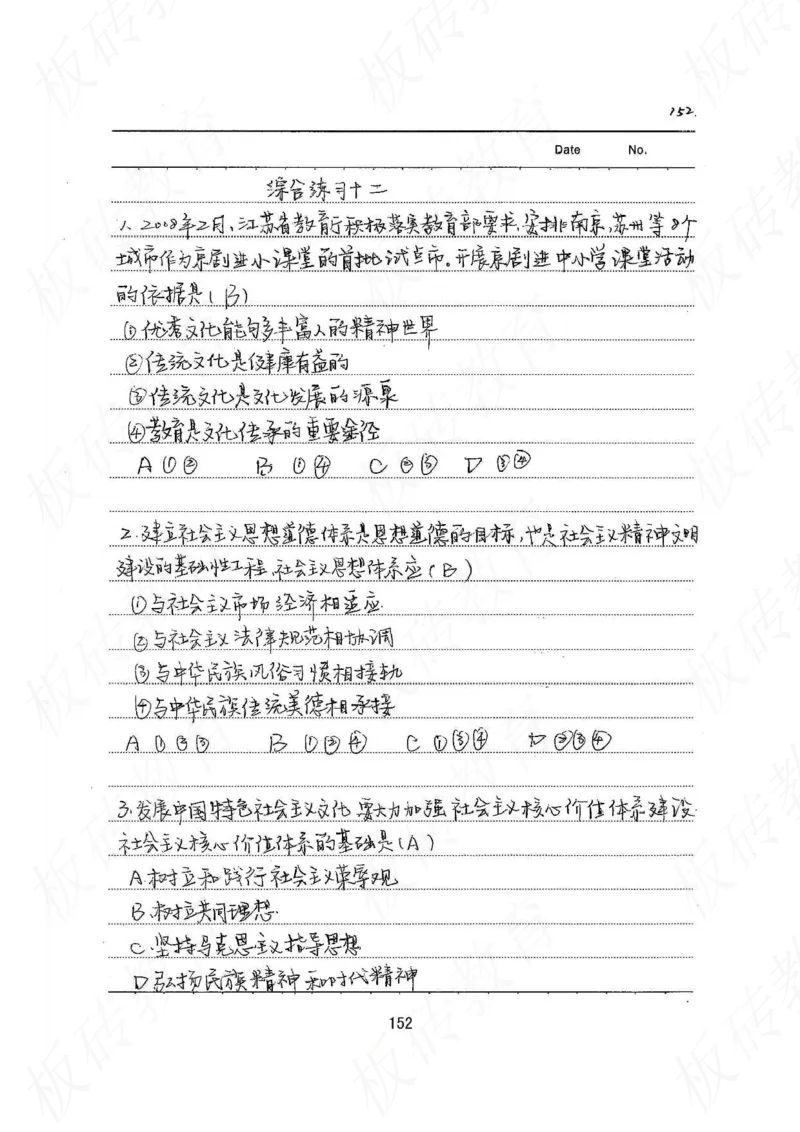 152.
Date No.
综合练习十二
1、2008年2月,江苏省教育厅积极落实教育部要求,安排南京,苏州等8个
城市作为京剧进小课堂的首批试点市。开展京剧进中小学课堂活动
的依据是(B)
①优秀文化能够多丰富人的精神世界
②传统文化是健康有益的
③传统文化是文化发展的源泉
④教育是文化传承的重要途径
A ①② B ①④ C ②③ D ③④
2.建立社会主义思想道德体系是思想道德的目标,也是社会主义精神文明
建设的基础性工程,社会主义思想体系应(B)
①与社会主义市场经济相适应.
②与社会主义法律规范相协调
③与中华民族风俗习惯相接轨
④与中华民族传统美德相承接
A ①②③ B ①②④ C ①③④ D ②③④
3.发展中国特色社会主义文化,要大力加强社会主义核心价值体系建设.
社会主义核心价值体系的基础是(A)
A.树立和践行社会主义荣辱观
B.树立共同理想.
C.坚持马克思主义指导思想
D弘扬民族精神和时代精神
152
板砖教育